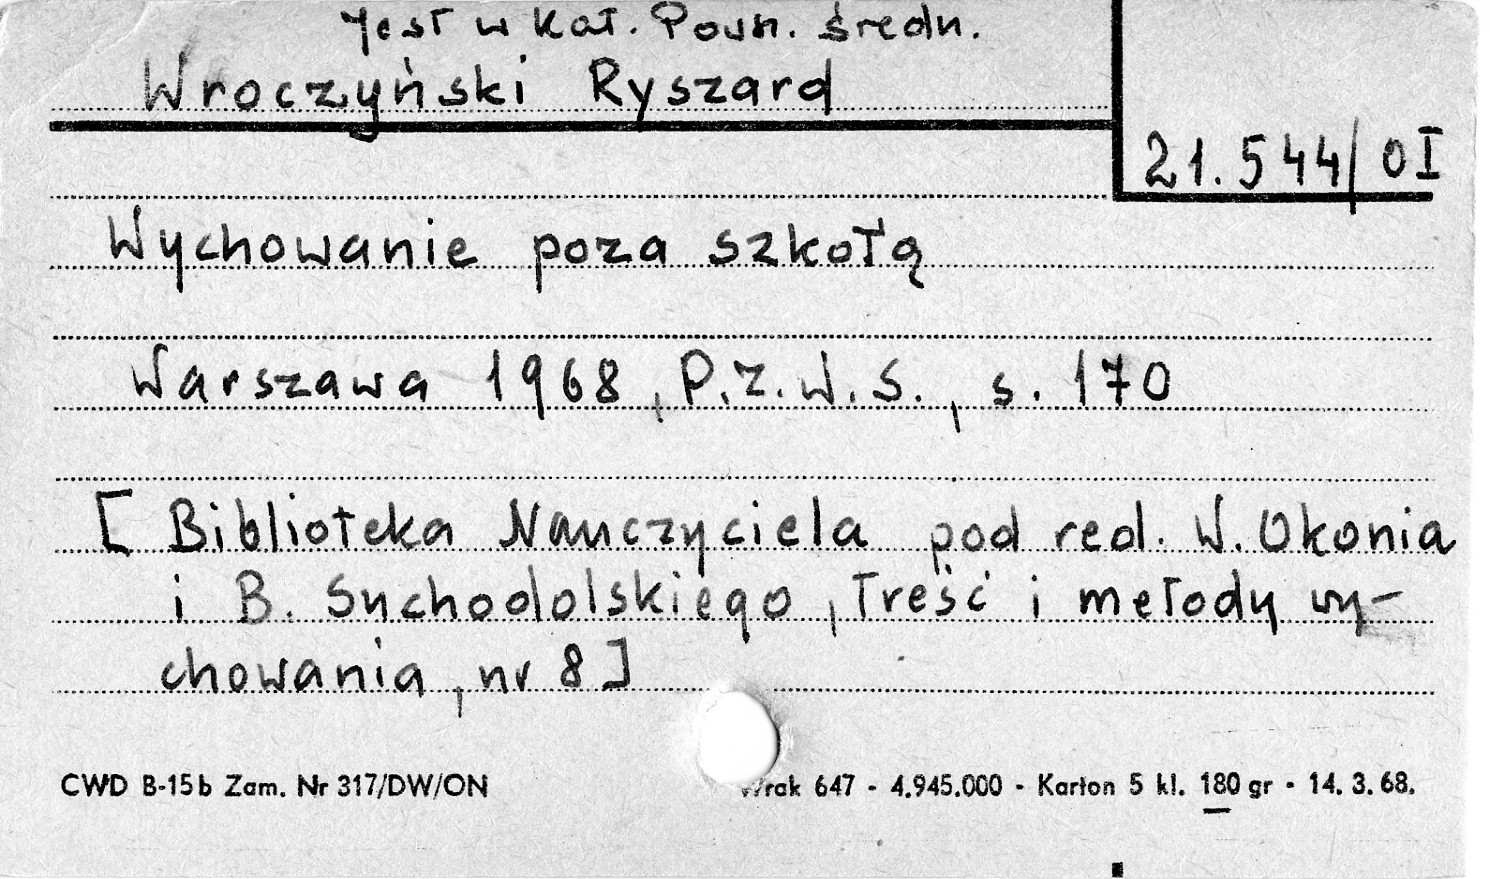 Jest w Kat. Powsz. średn.
Wroczyński Ryszard
21.544/OI
Wychowanie poza szkołą
Warszawa 1968, P.Z.W.S., s. 170
[Biblioteka Nauczyciela pod red. W. Okonia
i B. Suchodolskiego, Treść i metody wy-
chowania, nr 8]
CWD B-15b Zam. Nr 317/DW/ON
Wrak 647 - 4.945.000 - Karton 5 kl. 180 gr - 14. 3. 68.